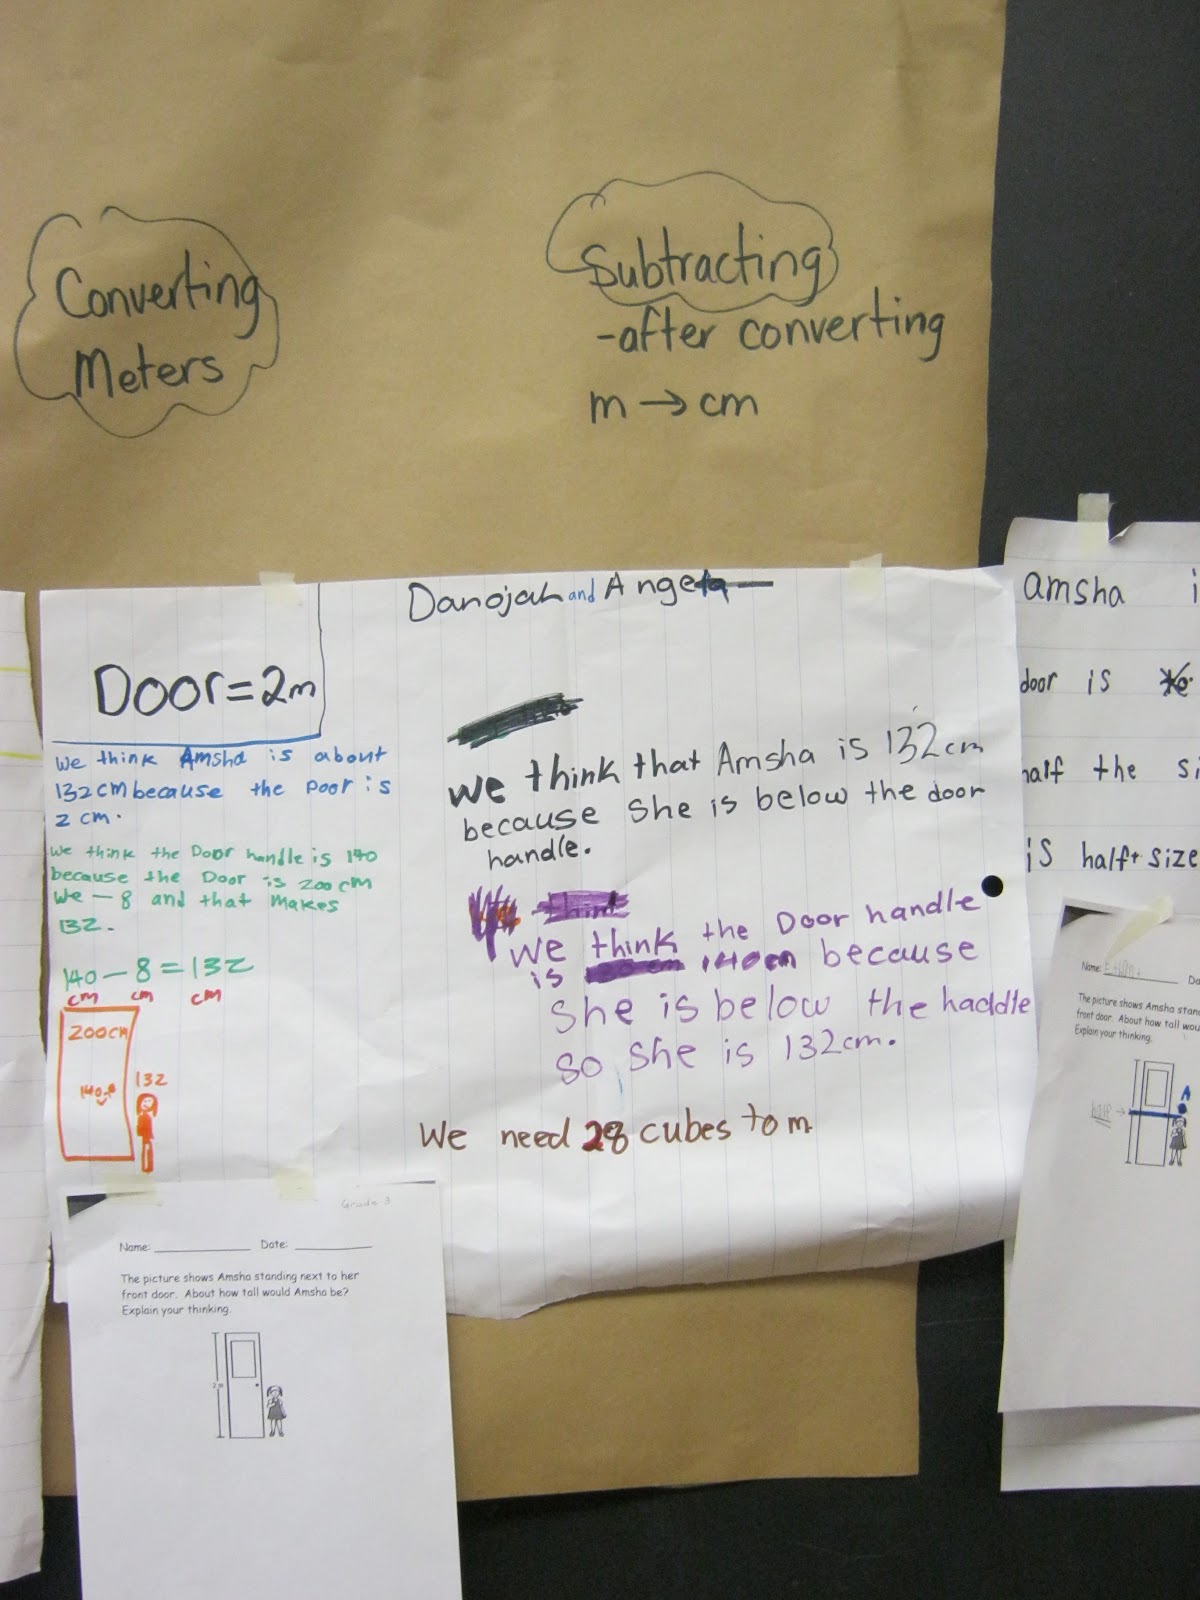 Converting
Meters
Subtracting
-after converting
m → cm
Danojah and Angela
Door=2m
We think Amsha is about
132cm because the Door is
2 cm.
We think the Door handle is 140
because the Door is 200 cm
We - 8 and that makes
132.
140 - 8 = 132
cm cm cm
200cm
140
132
we think that Amsha is 132cm
because she is below the door
handle.
We think the Door handle
is 140cm because
she is below the haddle
so she is 132cm.
We need 28 cubes to m
Grade 3
Name: Date:
The picture shows Amsha standing next to her
front door. About how tall would Amsha be?
Explain your thinking.
2 m
amsha i
door is
half the si
is half size
Name:
Da
The picture shows Amsha stan
front door. About how tall wou
Explain your thinking.
half